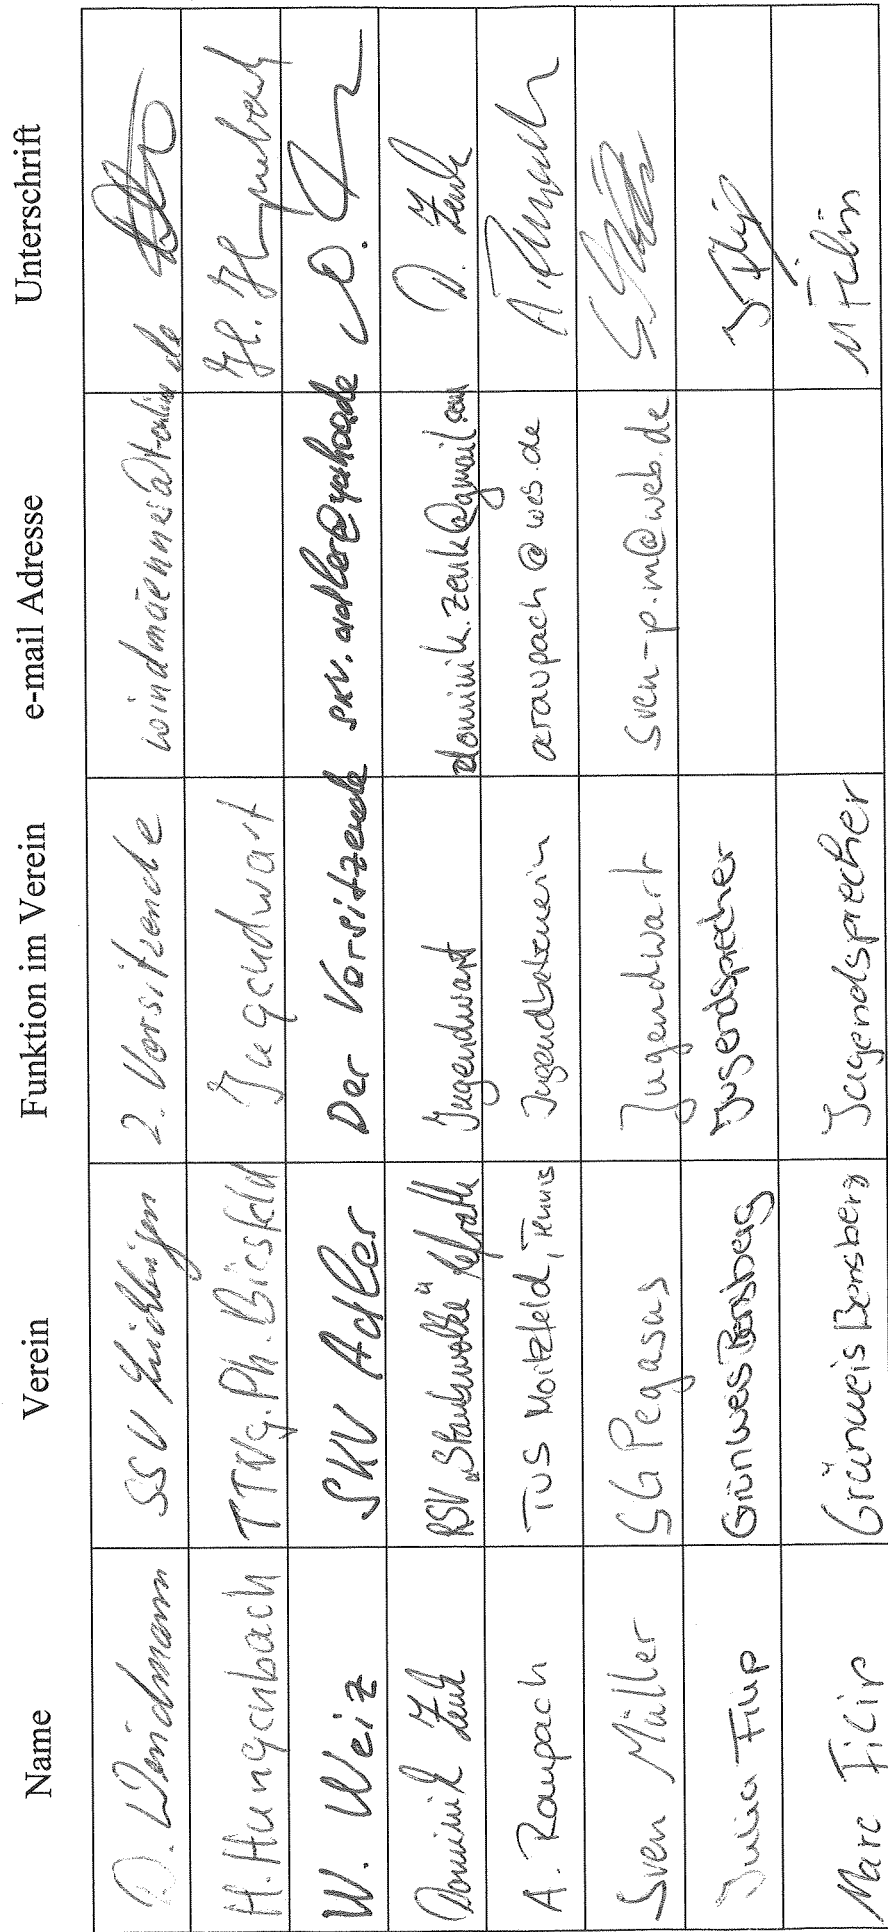 Name Verein Funktion im Verein e-mail Adresse Unterschrift
D. Windmann SSV 2. Vorsitzende
H. Hungenbach TTVg. Ph. Biesfeld Jugendwart H. Hungenbach
W. Weiz SKV Adler Der Vorsitzende skv.adler@yahoo.de
Dominik Zenk RSV „Staubwolke“ Refrath Jugendwart dominik.zenk@gmail.com D. Zenk
A. Raupach TUS Moitzfeld, Tennis araupach@web.de A. Raupach
Sven Müller SG Pegasus Jugendwart sven-p.m@web.de
Julia Filip Grünweis Bensberg Jugendsprecher J Filip
Marc Filip Grünweis Bensberg Jugendsprecher M Filip